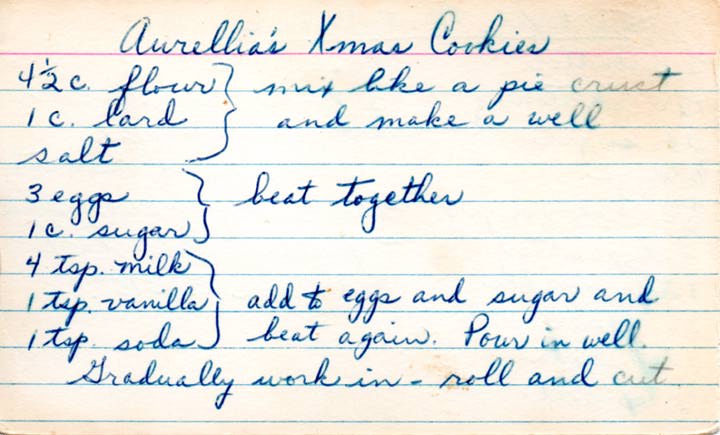 Aurellia's Xmas Cookies
4½ c. flour } mix like a pie crust
1 c. lard } and make a well
salt
3 eggs } beat together
1 c. sugar
4 tsp. milk
1 tsp. vanilla } add to eggs and sugar and
1 tsp. soda beat again. Pour in well.
Gradually work in - roll and cut